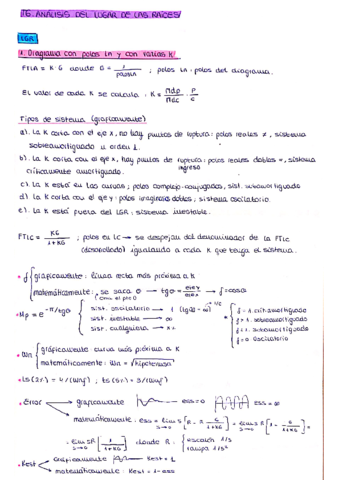 T6. ANÁLISIS DEL LUGAR DE LAS RAÍCES
LGR
1. Diagrama con polos LA y con varias K
FTLA = K·G donde G = 1/polosLA ; polos LA = polos del diagrama.
El valor de cada K se calcula: K = Mdp/Mdc · P/c
Tipos de sistema (gráficamente)
a). La K corta con el eje x, no hay puntos de ruptura: polos reales ≠, sistema
sobreamortiguado u orden 1.
b). La K corta con el eje x, hay puntos de ruptura: polos reales dobles =, sistema
ingreso
críticamente amortiguado.
c). La K está en las curvas; polos complejo-conjugados, sist. subamortiguado
d). La K corta con el eje y: polos imaginarios dobles; sistema oscilatorio.
e). La K está fuera del LGR: sistema inestable.
FTLC = KG/1+KG ; polos en LC → se despejan del denominador de la FTLC
(desarrollado) igualando a cada K que tenga el sistema.
gráficamente: línea recta más próxima a K
matemáticamente: se saca θ → tgθ =
(con el pto)
Mp = e^-π/tgθ
sist. oscilatorio → 1
sist. inestable → ∞
sist. cualquiera → x.
Wn
gráficamente: curva más próxima a K
matemáticamente: Wn = √hipotenusa²
Error
gráficamente
ess=0
ess=∞
matemáticamente: ess = lim s
s→0
donde R
escalón 1/s
rampa 1/s²
Kest
gráficamente
Kest = 1
matemáticamente: Kest = 1-ess